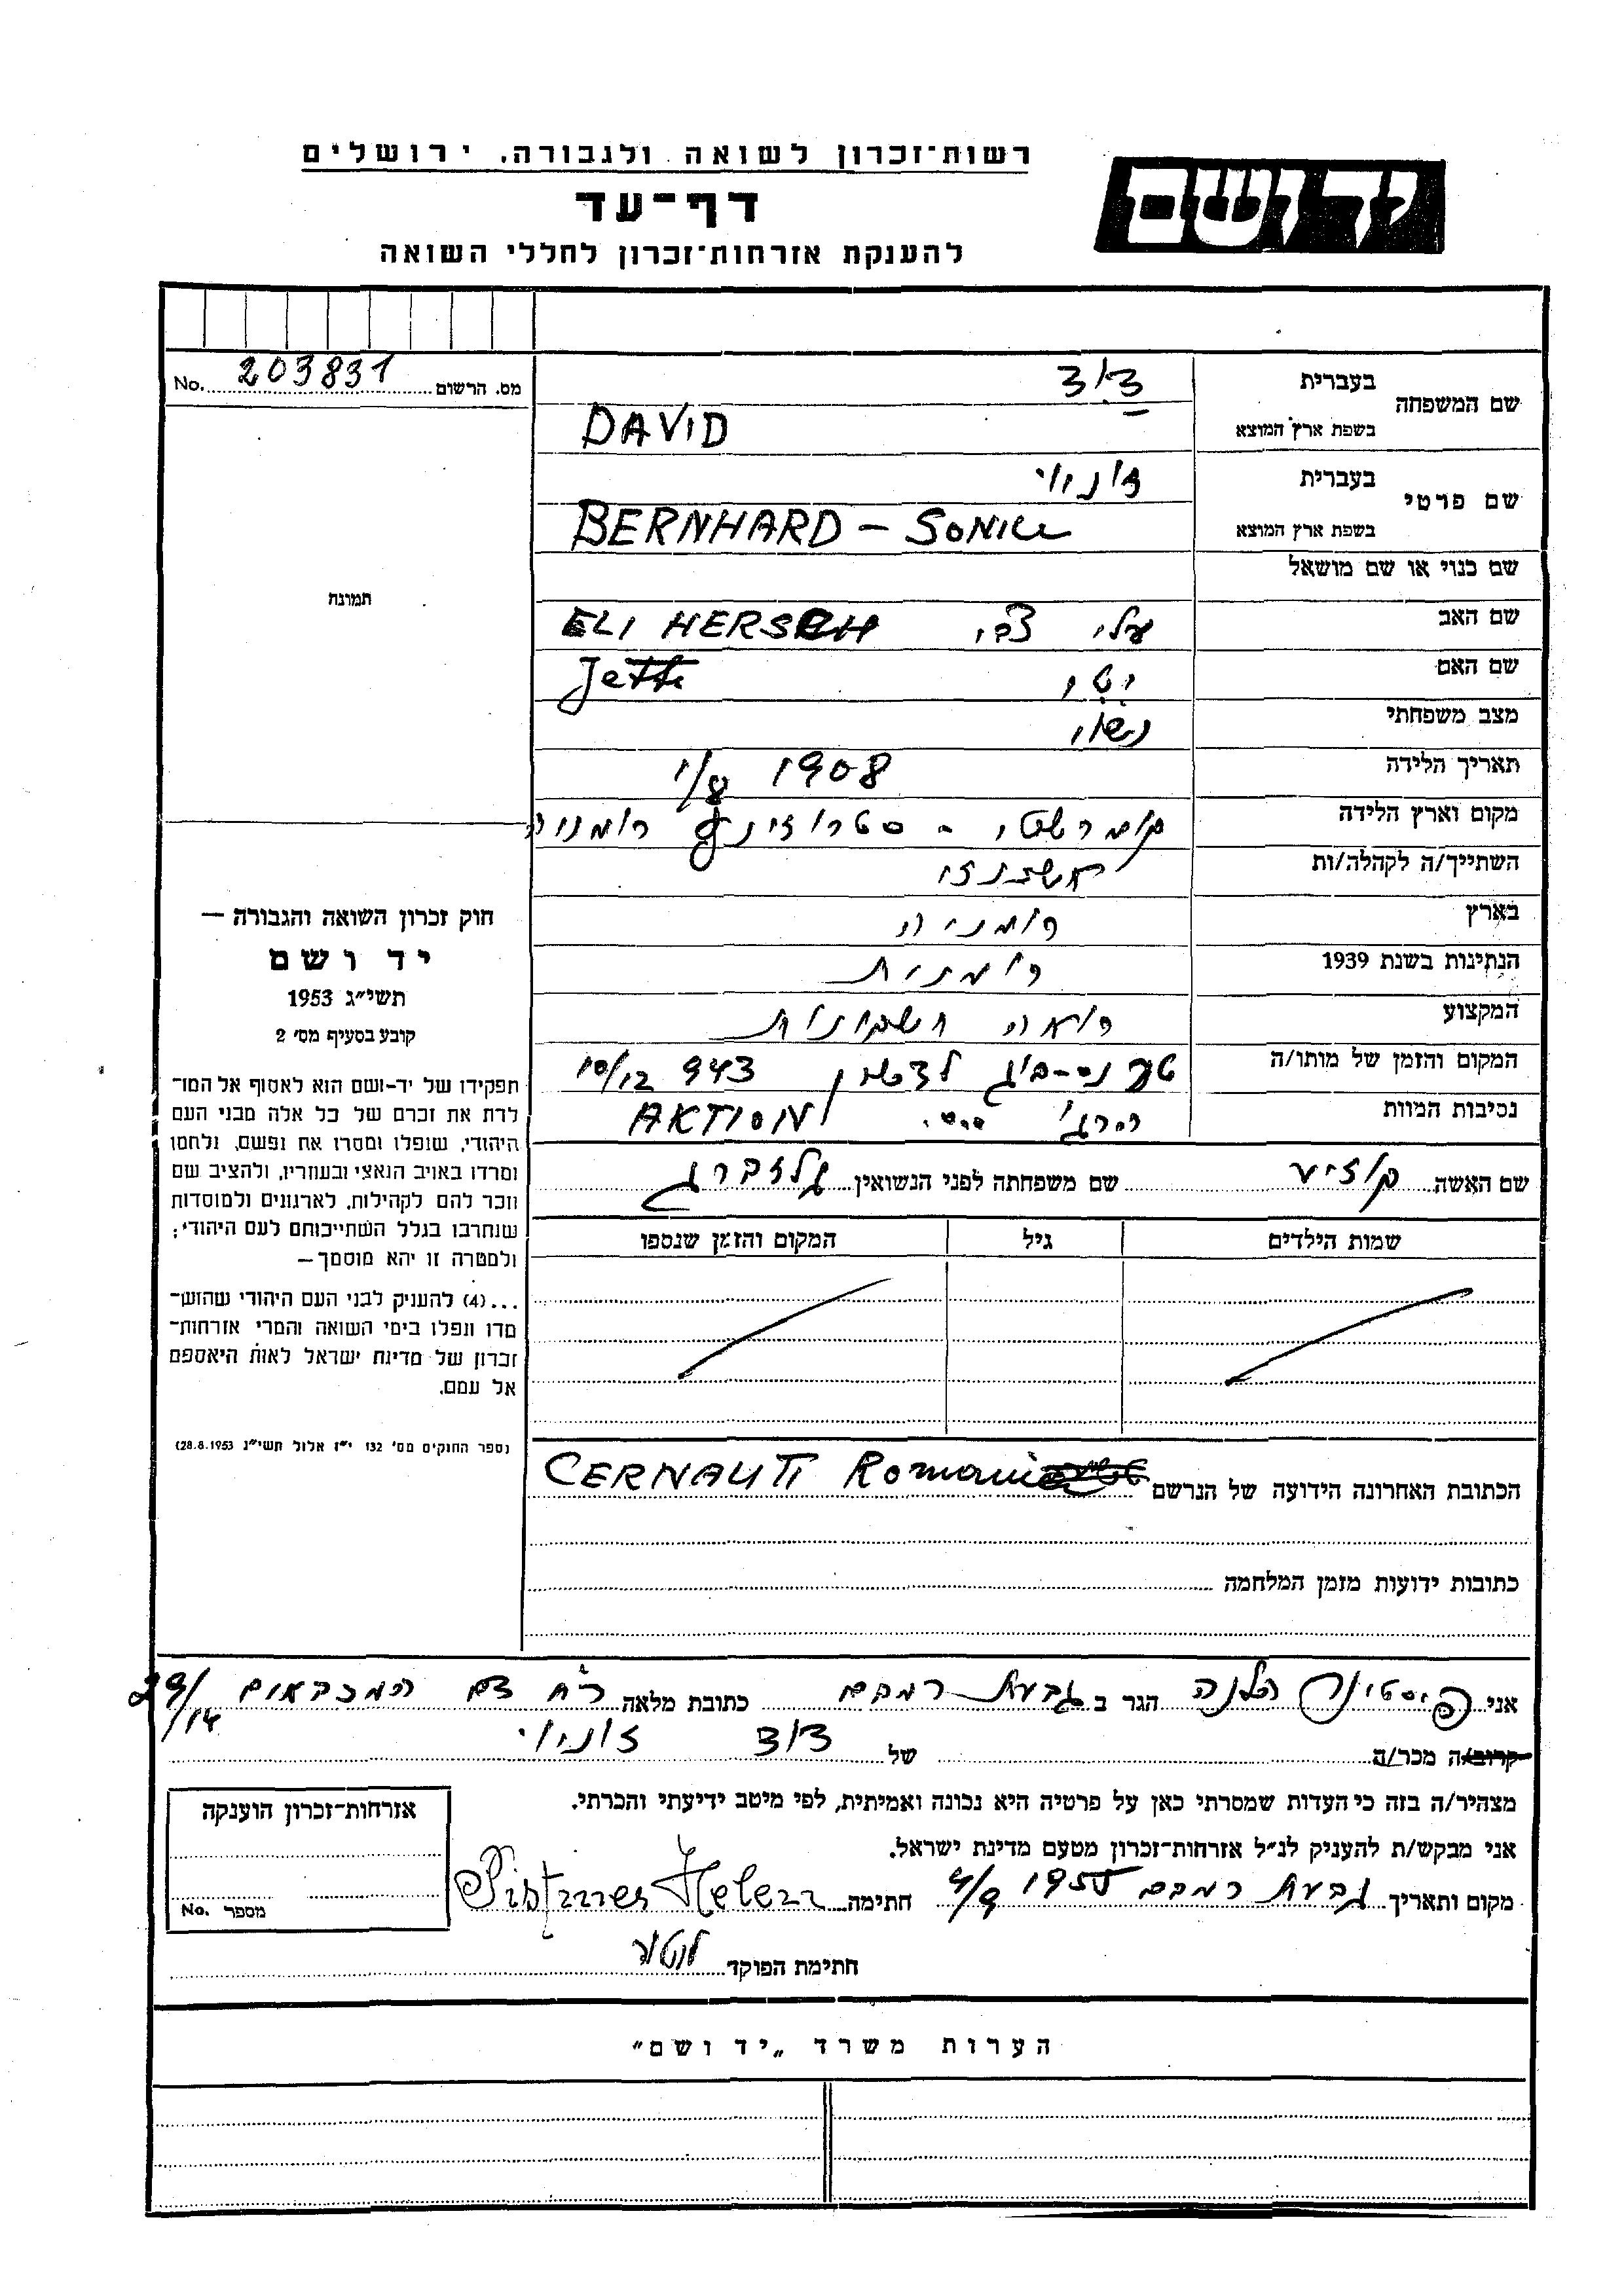 רשות־זכרון לשואה ולגבורה, ירושלים
יד ושם
דף־עד
להענקת אזרחות־זכרון לחללי השואה
מס. הרשום 203831 No.
שם המשפחה
בעברית דוד
בשפת ארץ המוצא DAVID
שם פרטי
בעברית זוניוי
בשפת ארץ המוצא BERNHARD –
שם כנוי או שם מושאל
שם האב עלי צבי ELI HERSCH
שם האם יטי Jetti
מצב משפחתי נשוי
תאריך הלידה 1/8 1908
מקום וארץ הלידה רומניה
השתייך/ה לקהלה/ות אשכנזי
בארץ רומניה
הנתינות בשנת 1939 רומנית
המקצוע רואה חשבונות
המקום והזמן של מותו/ה 10/12 943
נסיבות המוות הרגו ס.ס. AKTION
שם האשה קוזיע שם משפחתה לפני הנשואין גלזברג
שמות הילדים גיל המקום והזמן שנספו
הכתובת האחרונה הידועה של הנרשם CERNAUTI Romania
כתובות ידועות מזמן המלחמה
תמונה
חוק זכרון השואה והגבורה —
יד ושם
תשי״ג 1953
קובע בסעיף מס׳ 2
תפקידו של יד־ושם הוא לאסוף אל המו־
לדת את זכרם של כל אלה מבני העם
היהודי, שנפלו ומסרו את נפשם, נלחמו
ומרדו באויב הנאצי ובעוזריו, ולהציב שם
וזכר להם לקהילות, לארגונים ולמוסדות
שנחרבו בגלל השתייכותם לעם היהודי;
ולמטרה זו יהא מוסמך —
...(4) להעניק לבני העם היהודי שהוש־
מדו ונפלו בימי השואה והמרי אזרחות־
זכרון של מדינת ישראל לאות היאספם
אל עמם.
(ספר החוקים מס׳ 132 י״ז אלול תשי״ג 28.8.1953)
אני פיסטינר הלנה הגר ב גבעת רמבם כתובת מלאה רח המכבאים 29/
/14
קרוב/ה מכר/ה של דוד זוניוי
מצהיר/ה בזה כי העדות שמסרתי כאן על פרטיה היא נכונה ואמיתית, לפי מיטב ידיעתי והכרתי.
אני מבקש/ת להעניק לנ״ל אזרחות־זכרון מטעם מדינת ישראל.
מקום ותאריך גבעת רמבם 1955 4/9 חתימה Pistiner Helen
חתימת הפוקד
אזרחות־זכרון הוענקה
מספר No.
הערות משרד „יד ושם״